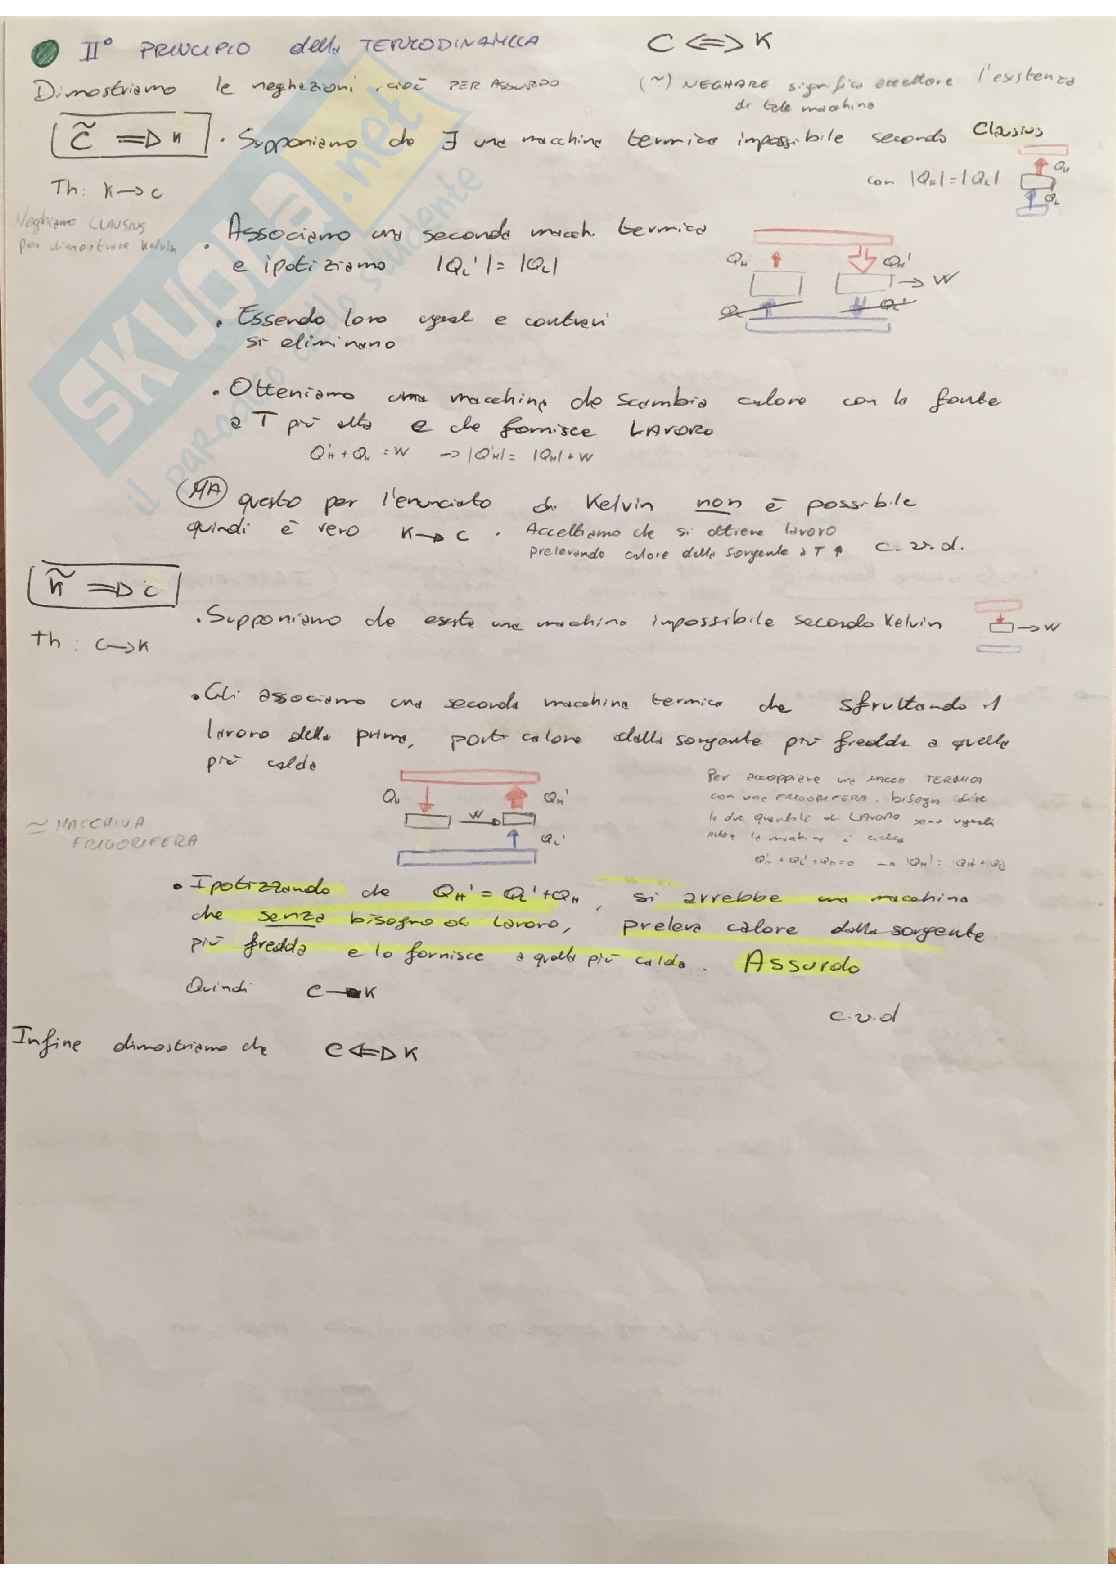 II° PRINCIPIO della TERMODINAMICA
C <=> K
Dimostriamo le neghazioni, cioè PER ASSURDO
(~) NEGHARE significa accettare l'esistenza
di tale macchina
C̃ => K
• Supponiamo che ∃ una macchina termica impossibile secondo Clausius
con |QH|=|QL|
QH
QL
Th: K → C
Neghiamo CLAUSIUS
per dimostrare Kelvin
• Associamo una seconda macch. termica
e ipotizziamo |QL'|=|QL|
QH
QH'
→ W
• Essendo loro uguali e contrari
si eliminano
• Otteniamo una macchina che scambia calore con la fonte
a T più alta e che fornisce LAVORO
QH'+QH = W → |QH'| = |QH|+W
MA questo per l'enunciato di Kelvin non è possibile
quindi è vero K → C.
Accettiamo che si ottiene lavoro
prelevando calore dalla sorgente a T ↑
c.v.d.
K̃ => C
• Supponiamo che esista una macchina impossibile secondo Kelvin
→ W
Th: C → K
• Gli associamo una seconda macchina termica che sfruttando il
lavoro della prima, porti calore dalla sorgente più fredda a quella
più calda
QH
W
QH'
QL'
≃ MACCHINA
FRIGORIFERA
Per accoppiare una macc TERMICA
con una FRIGORIFERA, bisogna dire
le due quantità di LAVORO sono uguali
• Ipotizzando che QH' = QL'+QH, si avrebbe una macchina
che senza bisogno di lavoro, preleva calore dalla sorgente
più fredda e lo fornisce a quella più calda. Assurdo
Quindi C → K
c.v.d
Infine dimostriamo che C <=> K
SKUOLA.net
il paradiso dello studente